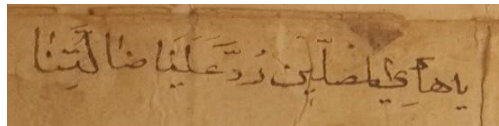 يا هادي المضلين رُدَّ عَلَينا ضالتَنا